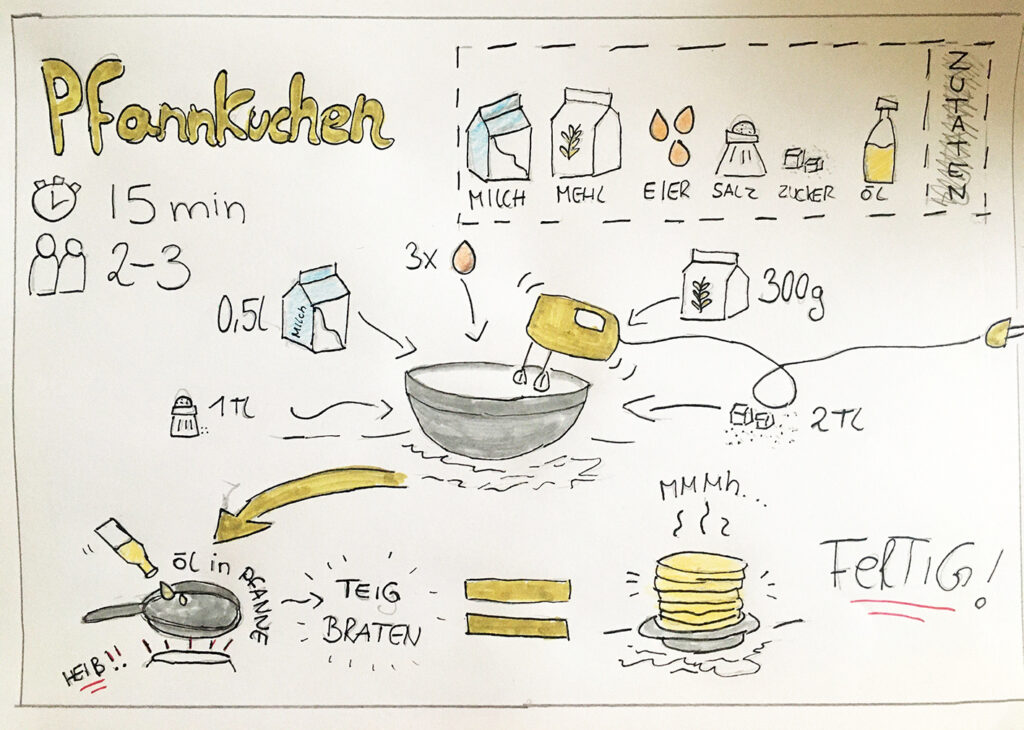 Pfannkuchen
15 min
2-3
MILCH
MEHL
EIER
SALZ
ZUCKER
ÖL
ZUTATEN
0,5l
Milch
3x
300g
1 TL
2 TL
ÖL in PFANNE
HEIß!!
TEIG
BRATEN
MMMh...
FERTIG!